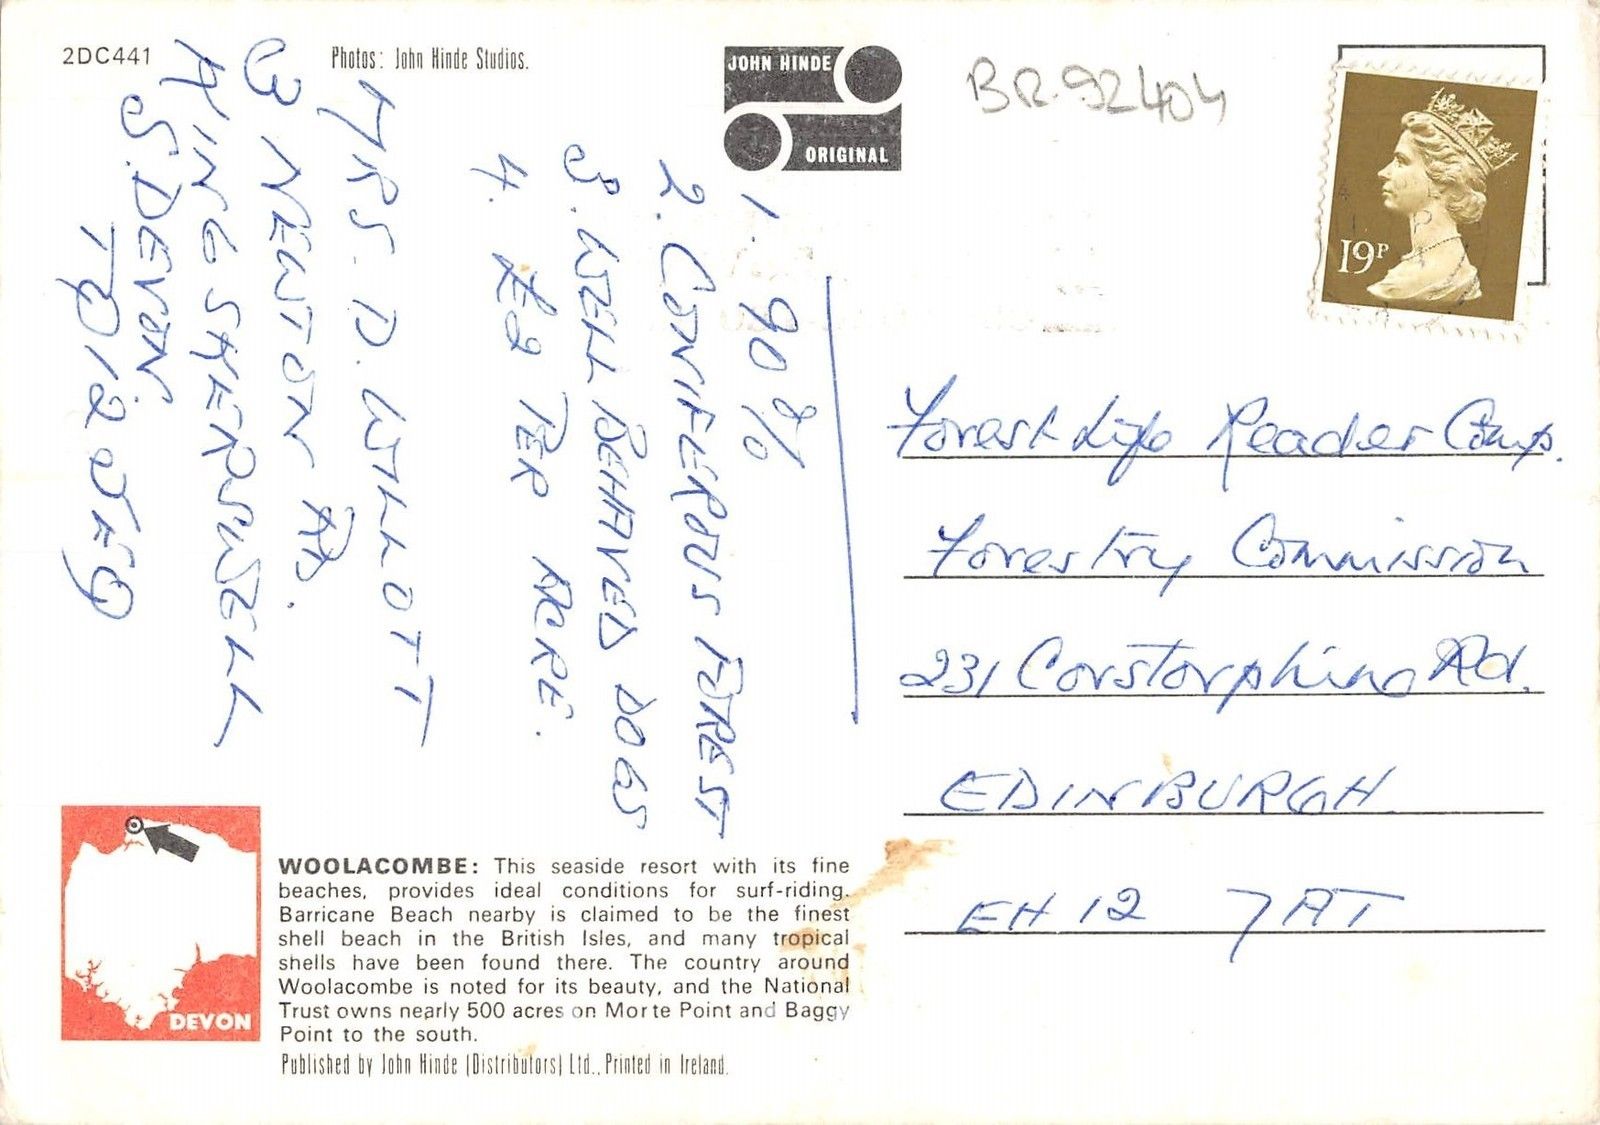 2DC441
Photos: John Hinde Studios.
JOHN HINDE
ORIGINAL
BR.92404
19P
1. 90%
2. CONIFEROUS FOREST
3. WELL BEHAVED DOGS
4. £2 PER ACRE.
MRS. D. WILLOTT
3 NEWTON RD.
KINGSKERSWELL
S. DEVON
TQ12 5EQ
Forest Life Reader Comp.
Forestry Commission
231 Corstorphine Rd.
EDINBURGH
EH12 7AT
WOOLACOMBE: This seaside resort with its fine
beaches, provides ideal conditions for surf-riding.
Barricane Beach nearby is claimed to be the finest
shell beach in the British Isles, and many tropical
shells have been found there. The country around
Woolacombe is noted for its beauty, and the National
Trust owns nearly 500 acres on Morte Point and Baggy
Point to the south.
DEVON
Published by John Hinde (Distributors) Ltd., Printed in Ireland.